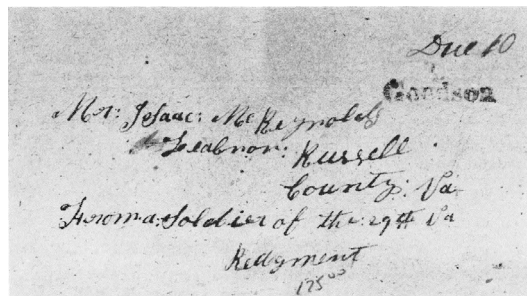 Due 10
Goodson
Mr: Isaac: McReynolds
Leabnon: Russell
County: Va
From a: Soldier of the 29th Va
Redgment
175⁰⁰